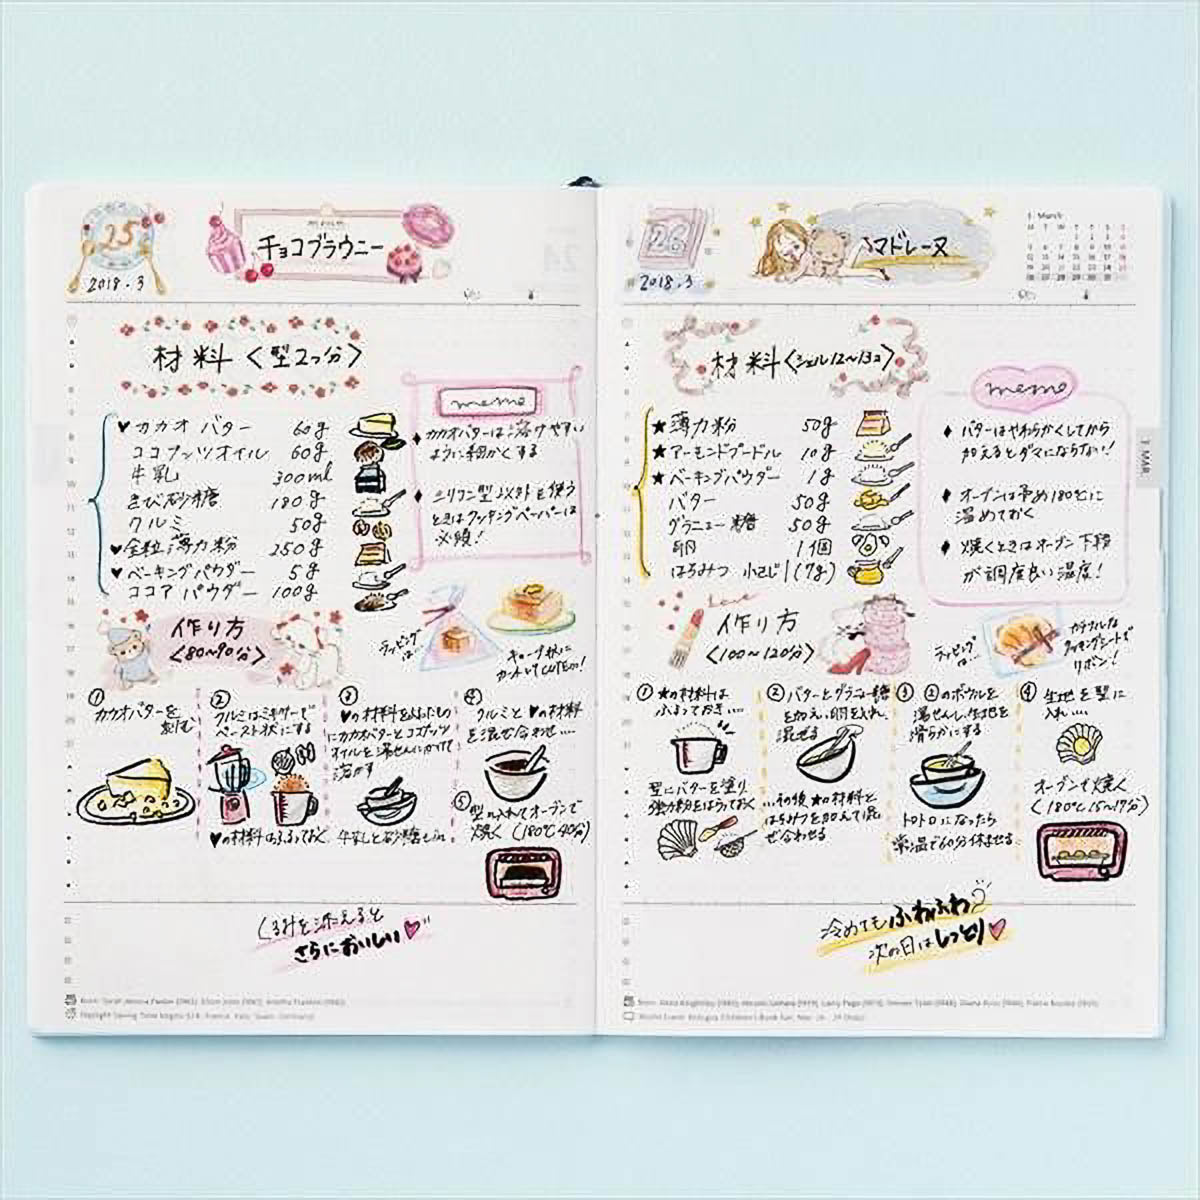 25
2018.3
チョコブラウニー
材料〈型2つ分〉
♥カカオバター 60g
ココナッツオイル 60g
牛乳 300ml
きび砂糖 180g
クルミ 50g
♥全粒薄力粉 250g
♥ベーキングパウダー 5g
ココアパウダー 100g
memo
♦カカオバターは溶けやすい
ように細かくする
♦シリコン型以外を使う
ときはクッキングペーパーは
必須!
作り方
〈80~90分〉
ラッピング
は…
キューブ状に
カットしてCUTEに!
①
カカオバターを
刻む
②
クルミはミキサーで
ペースト状にする
♥の材料はふるっておく
③
♥の材料
にカカオバターとココナッツ
オイルを湯せんにかけて
溶かす
牛乳と砂糖も
④
クルミと♥の材料
を混ぜ合わせ…
⑤型に入れてオーブンで
焼く(180℃40分)
くるみを添えると
さらにおいしい♥
26
2018.3
マドレーヌ
3 March
材料〈シェル12~13コ〉
★薄力粉 50g
★アーモンドプードル 10g
★ベーキングパウダー 1g
バター 50g
グラニュー糖 50g
卵 1個
はちみつ 小さじ1(7g)
memo
♦バターはやわらかくしてから
加えるとダマにならない!
♦オーブンは予め180℃に
温めておく
♦焼くときはオーブン下段
が調度良い温度!
Love
作り方
〈100~120分〉
ラッピング
は…
カラフルな
ワッキングシートで
リボン!
①★の材料は
ふるっておき…
型にバターを塗り
強力粉をはらっておく
②バターとグラニュー糖
を加え、卵を入れ、
混ぜる
…その後★の材料と
はちみつを加えて混
ぜ合わせる
③②のボウルを
湯せんし、生地を
滑らかにする
トロトロになったら
常温で60分休ませる
④生地を型に
入れ…
オーブンで焼く
(180℃15~17分)
冷めてもふわふわ♡
次の日はしっとり♥
3 MAR.